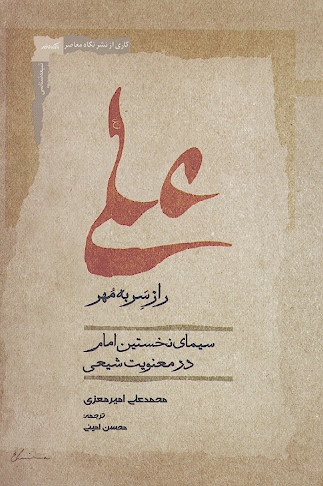 کاری از نشر نگاه معاصر
شیعه‌شناسی
علی
رازِ سَر به مُهر
سیمای نخستین امام
در معنویت شیعی
محمدعلی امیرمعزی
ترجمه:
محسن امینی